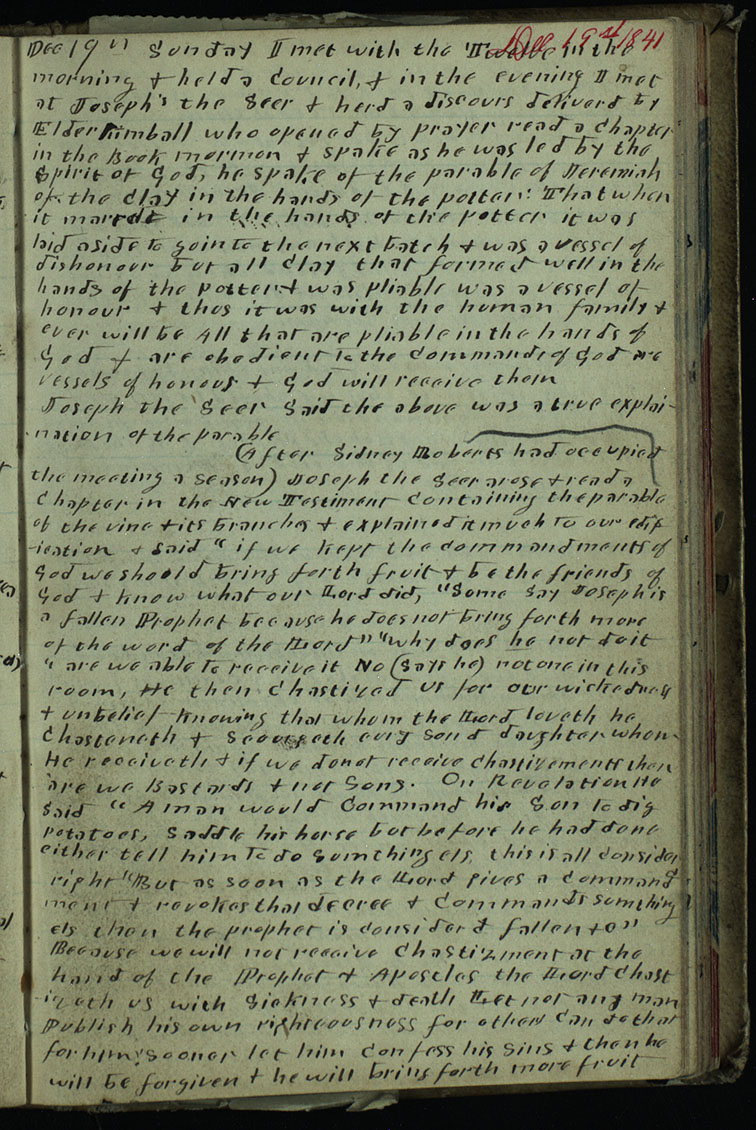 Dec 19th 1841
Dec 19th Sunday I met with the Twelve in the
morning & held a council, & in the evening I met
at Joseph's the Seer & herd a discours deliverd by
Elder Kimball who opened by prayer read a chapter
in the Book mormon & spake as he was led by the
Spirit of God, he spake of the parable of Jeremiah
of the clay in the hands of the potter. That when
it marred in the hands of the potter it was
laid aside to go into the next batch & was a vessel of
dishonour but all clay that formed well in the
hands of the potter & was pliable was a vessel of
honour & thus it was with the human family &
ever will be All that are pliable in the hands of
God & are obedient to the commands of God are
vessels of honour & God will receive them
Joseph the Seer Said the above was a true explai-
nation of the parable
(After Sidney Roberts had occupied
the meeting a season) Joseph the Seer arose & read a
Chapter in the New Testiment containing the parable
of the vine & its branches & explained it much to our edif-
ication & said "if we kept the commandments of
God we should bring forth fruit & be the friends of
God & know what our Lord did, "Some Say Joseph is
a fallen Prophet because he does not bring forth more
of the word of the Lord" "why does he not do it
" are we able to receive it No (says he) not one in this
room, He then Chastized us for our wickedness
& unbelief knowing that whom the Lord loveth he
Chasteneth & Scourgeth evry son & daughter whom
He receiveth & if we do not receive chastizements then
are we Bastards & not Sons. On Revelation He
Said "A man would Command his Son to dig
potatoes, saddle his horse but before he had done
either tell him to do sumthing els, this is all consider
right "But as soon as the Lord gives a command
ment & revokes that decree & commands sumthing
els then the prophet is considerd fallen &c"
Because we will not receive Chastizment at the
hand of the Prophet & Apostles the Lord Chast
izeth us with Sickness & death Let not any man
Publish his own righteousness for others can do that
for him: sooner let him confess his sins & then he
will be forgiven & he will bring forth more fruit